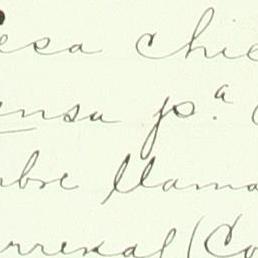 esa chi
ensa pª.
bre llama
rrexal (Co